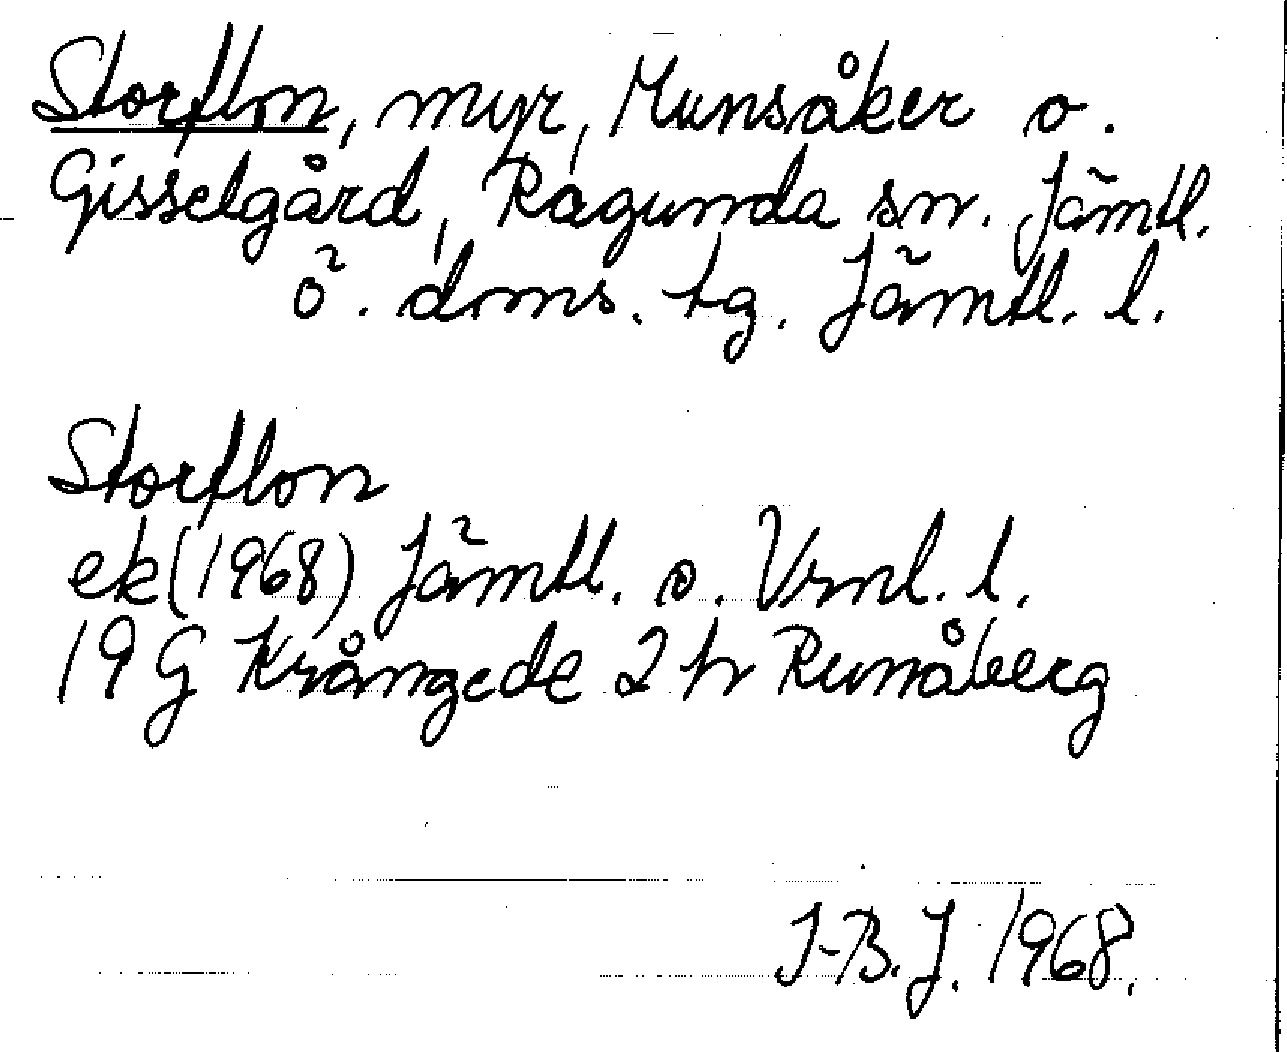 Storflon, myr, Munsåker o.
Gisselgård, Ragunda sn. Jämtl.
ö. doms. tg. Jämtl. l.
Storflon
ek (1968) Jämtl. o. Vrnl. l.
19 G Krångede 2 tr Runåberg
I-B. J. 1968.